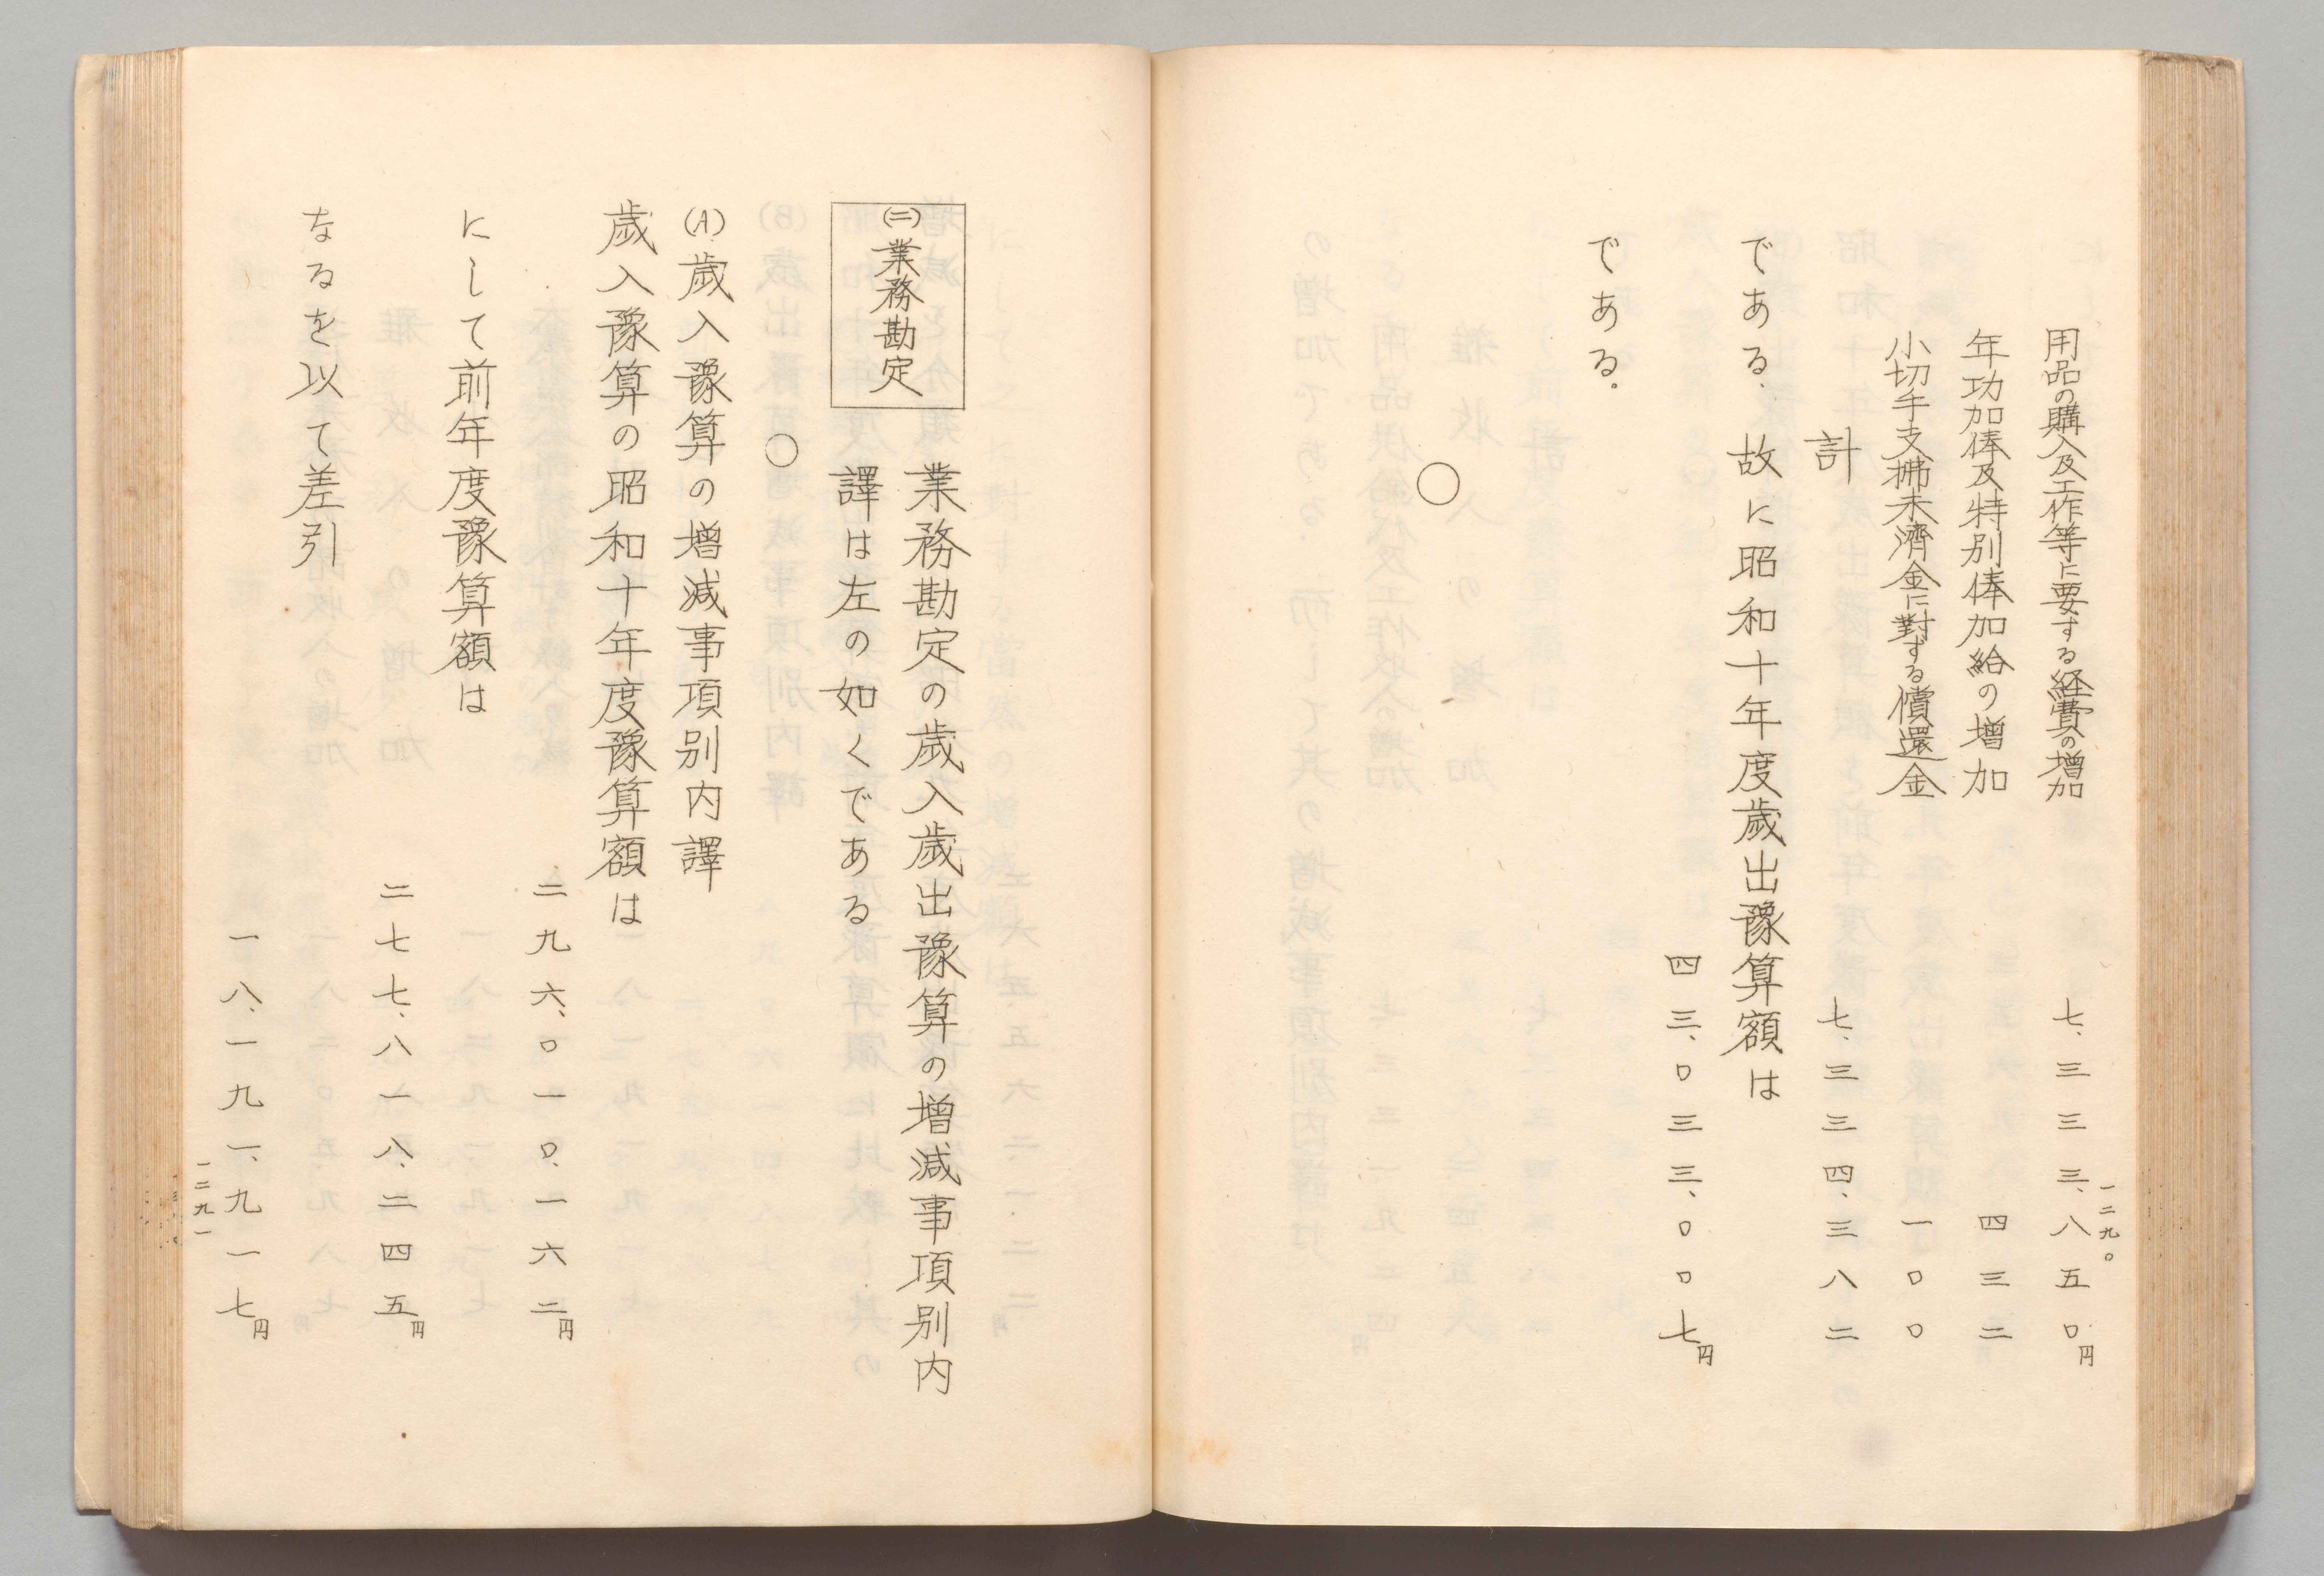 一二九〇
用品の購入及工作等に要する経費の増加 七、三三三、八五〇円
年功加俸及特別俸加給の増加 四三二
小切手支拂未濟金に對する償還金 一〇〇
計 七、三三四、三八二
である、故に昭和十年度歳出豫算額は
四三、〇三三、〇〇七円
である。
〇
㈡業務勘定
業務勘定の歳入歳出豫算の増減事項別内
譯は左の如くである
〇
(A)歳入豫算の増減事項別内譯
歳入豫算の昭和十年度豫算額は
二九六、〇一〇、一六二円
にして前年度豫算額は
二七七、八一八、二四五円
なるを以て差引
一八、一九一、九一七円
一二九一